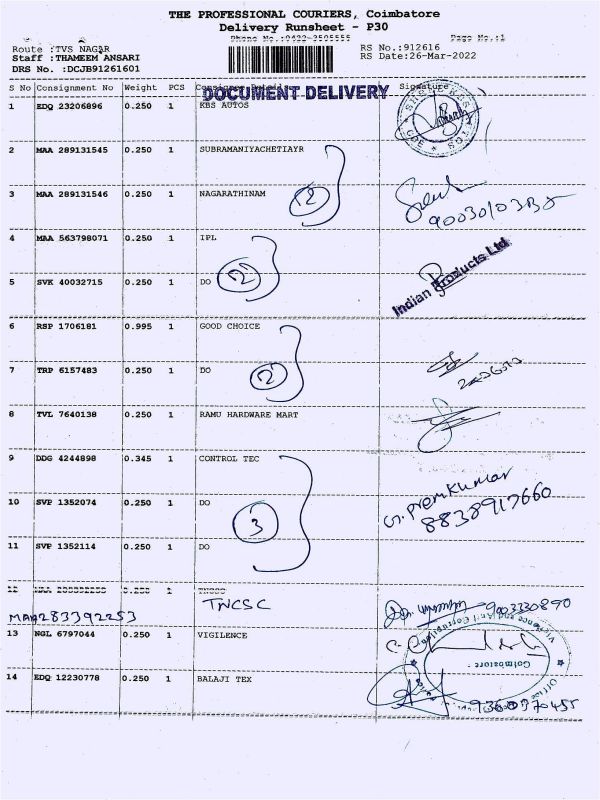 THE PROFESSIONAL COURIERS, Coimbatore
Delivery Runsheet - P30
Phone No.:0422-2505555 Page No.:1
Route :TVS NAGAR RS No.:912616
Staff :THAMEEM ANSARI RS Date:26-Mar-2022
DRS No. :DCJB91261601
S No Consignment No Weight PCS Consignee Details Signature
DOCUMENT DELIVERY
1 EDQ 23206896 0.250 1 KBS AUTOS
2 MAA 289131545 0.250 1 SUBRAMANIYACHETIAYR
3 MAA 289131546 0.250 1 NAGARATHINAM 2
4 MAA 563798071 0.250 1 IPL
Indian Products Ltd
5 SVK 40032715 0.250 1 DO 2
6 RSP 1706181 0.995 1 GOOD CHOICE
7 TRP 6157483 0.250 1 DO 2
8 TVL 7640138 0.250 1 RAMU HARDWARE MART
9 DDG 4244898 0.345 1 CONTROL TEC
10 SVP 1352074 0.250 1 DO 3 G. Premkumar
8838917660
11 SVP 1352114 0.250 1 DO
12 0.250 1 TNCSC
MAA283392253 TNCSC 9003330890
13 NGL 6797044 0.250 1 VIGILENCE
Vigilance and Anti Corruption
Coimbatore
Office
14 EDQ 12230778 0.250 1 BALAJI TEX
9360370455